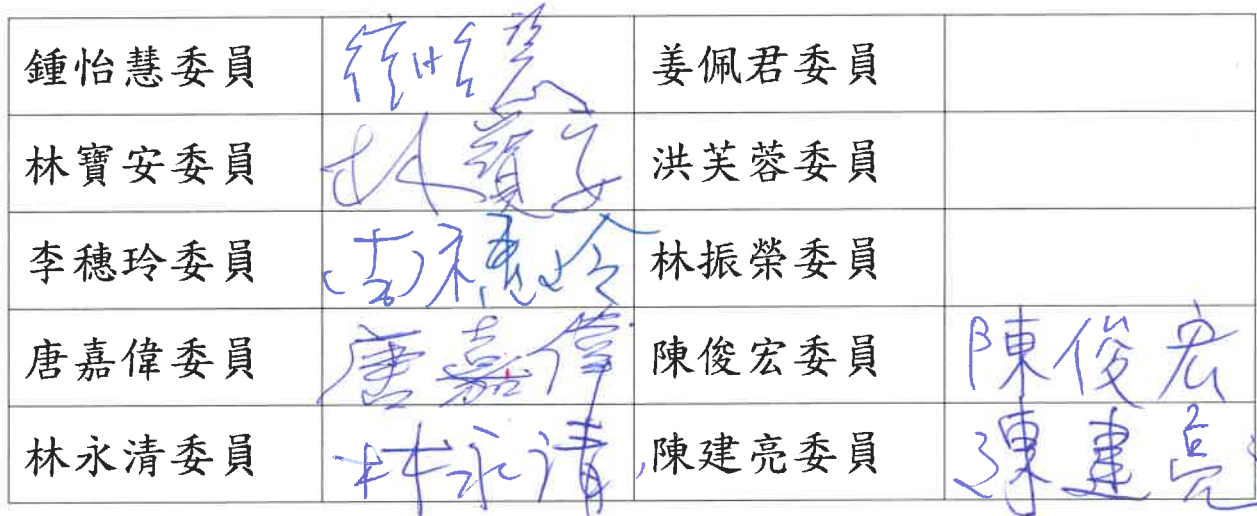 鍾怡慧委員 姜佩君委員
林寶安委員 林寶安 洪芙蓉委員
李穗玲委員 李穗玲 林振榮委員
唐嘉偉委員 唐嘉偉 陳俊宏委員 陳俊宏
林永清委員 林永清 陳建亮委員 陳建亮